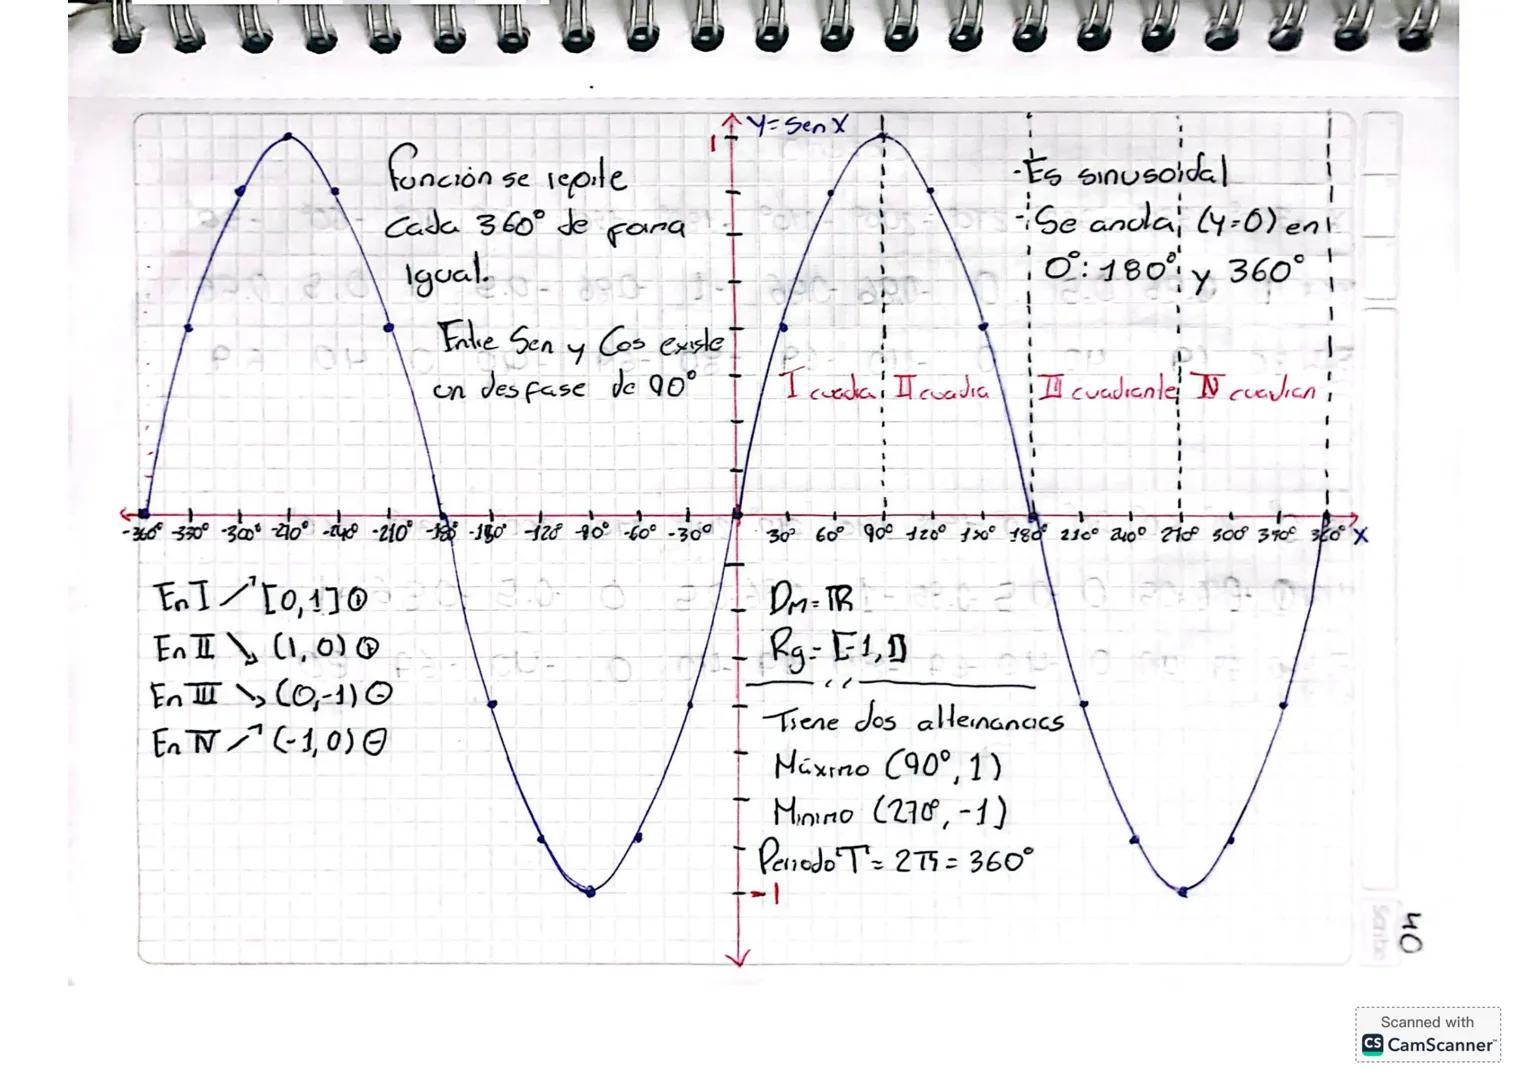 y = Sen X
1
función se repite
cada 360° de forma
igual.
Entre Sen y Cos existe
un desfase de 90°
- Es sinusoidal
- Se anula (y=0) en
0°: 180° y 360°
I cuadra II cuadra III cuadrante IV cuadran
-360° -330° -300° -270° -240° -210° -180° -150° -120° -90° -60° -30° 30° 60° 90° 120° 150° 180° 210° 240° 270° 300° 330° 360° X
En I ↗ [0,1] ⊕
En II ↘ (1,0) ⊕
En III ↘ (0,-1) ⊖
En IV ↗ (-1,0) ⊖
Dm = ℝ
Rg = [-1,1]
Tiene dos alternancias
Máximo (90°, 1)
Minimo (270°, -1)
Periodo T = 2π = 360°
-1
40
Scribe
Scanned with
CS CamScanner